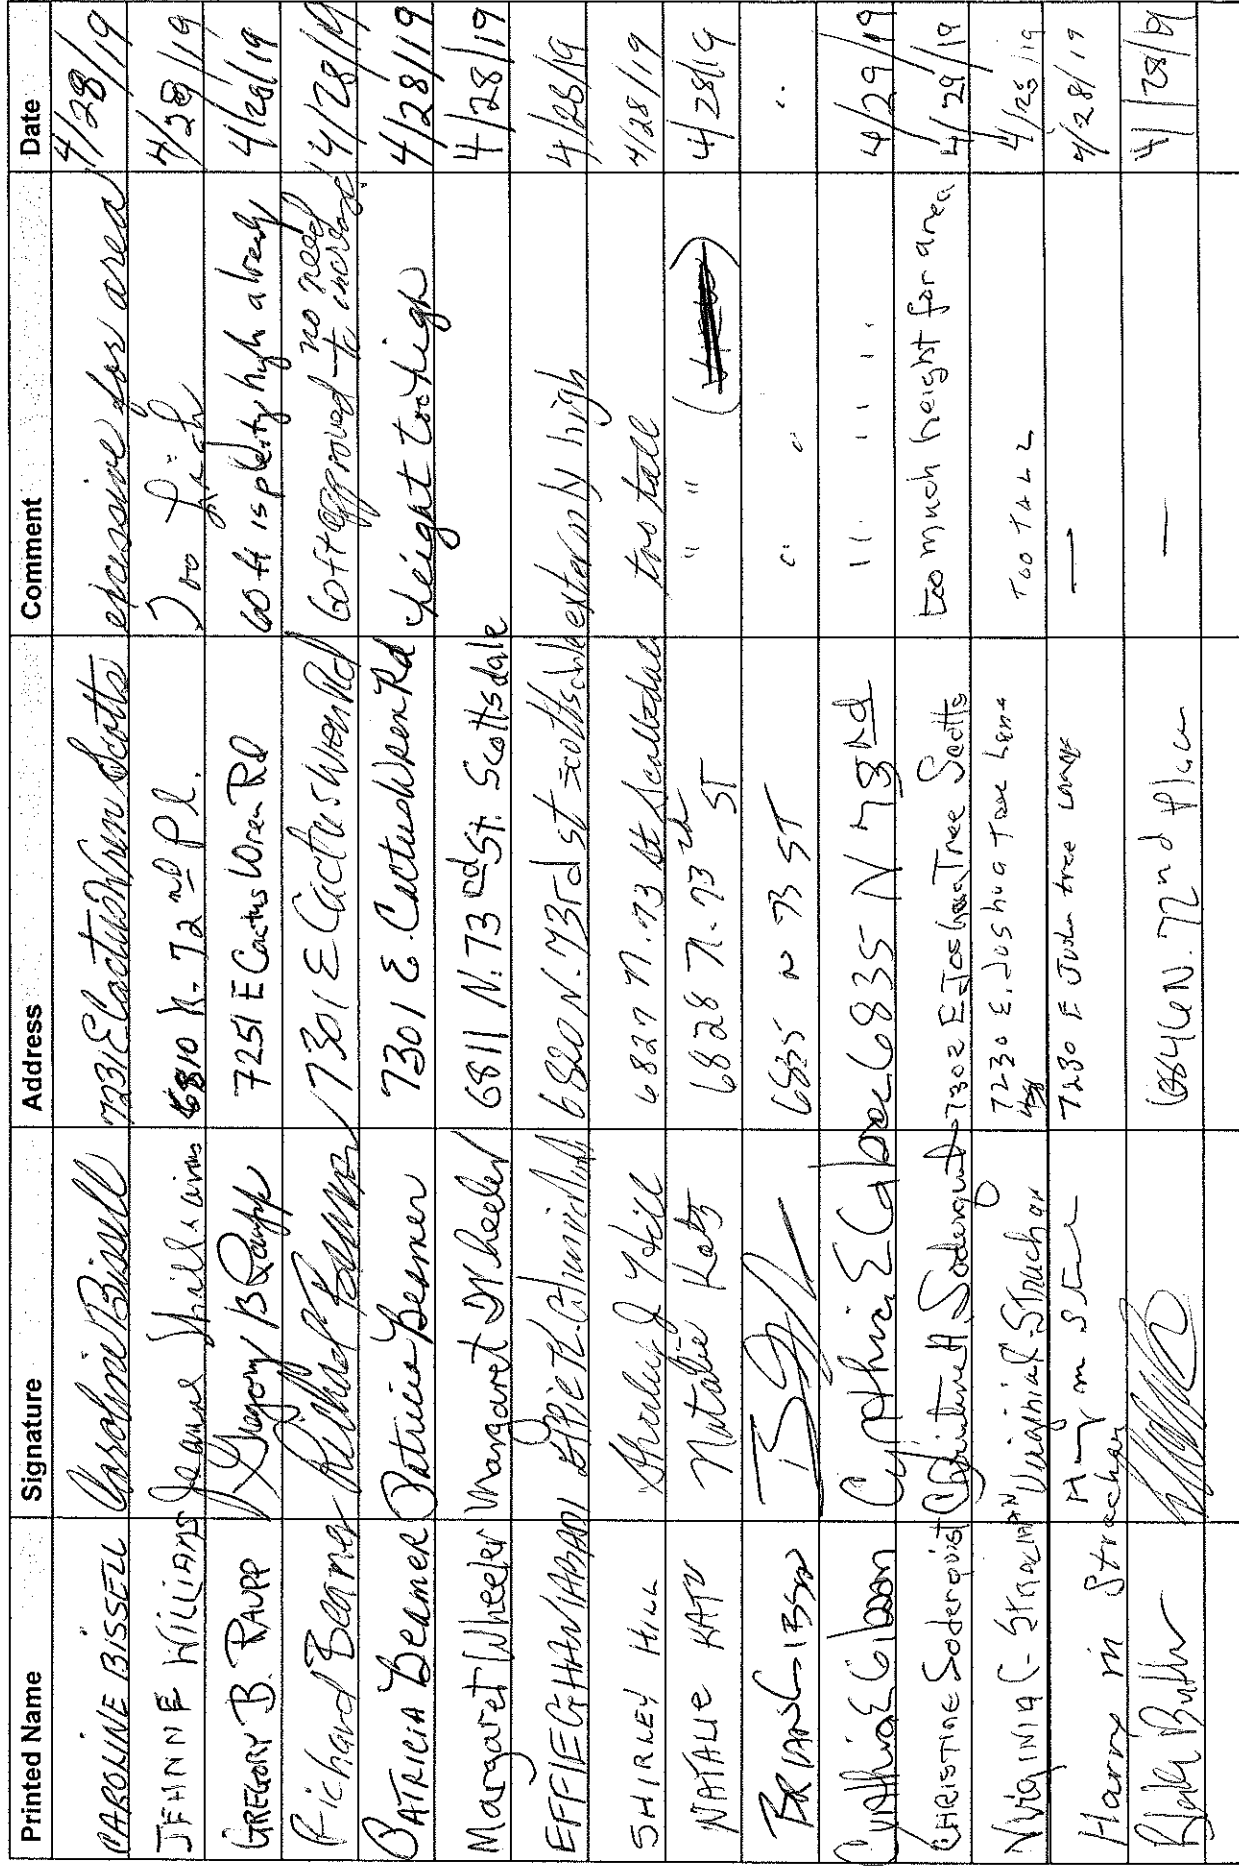 Printed Name Signature Address Comment Date
CAROLINE BISSELL Caroline Bissell 7231 E Cactus Wren Scotts excessive for area 4/28/19
JEANNE WILLIAMS Jeanne Williams 6810 N. 72nd Pl. Too high 4/28/19
GREGORY B. RAUPP Gregory B Raupp 7251 E Cactus Wren Rd 60 ft is plenty high already 4/28/19
Richard Beamer Richard Beamer 7301 E Cactus Wren Rd 60 ft approved no need to increase 4/28/19
PATRICIA Beamer Patricia Beamer 7301 E. Cactus Wren Rd height too high 4/28/19
Margaret Wheeler Margaret Wheeler 6811 N. 73rd St. Scottsdale 4/28/19
EFFIE 6820 N. 73rd st scottsdale extermly high 4/28/19
SHIRLEY HILL Shirley J Hill 6827 N. 73 St Scottsdale too tall 4/28/19
NATALIE KATZ Natalie Katz 6828 N. 73rd ST " " 4/28/19
BRIAN GIBSON 6835 N 73 ST " " ..
Cynthia E Gibson Cynthia E 6835 N 73rd " " " " 4/29/19
CHRISTINE Soderquist Christine A. Soderquist 7302 E Joshua Tree Scotts too much height for area 4/29/19
Virginia C. Strachan Virginia C. Strachan 7230 E. Joshua Tree Lane TOO TALL 4/28/19
Harry M Strachan 7230 E Joshua tree Lane — 4/28/19
Butler 6846 N. 72nd Place — 4/28/19